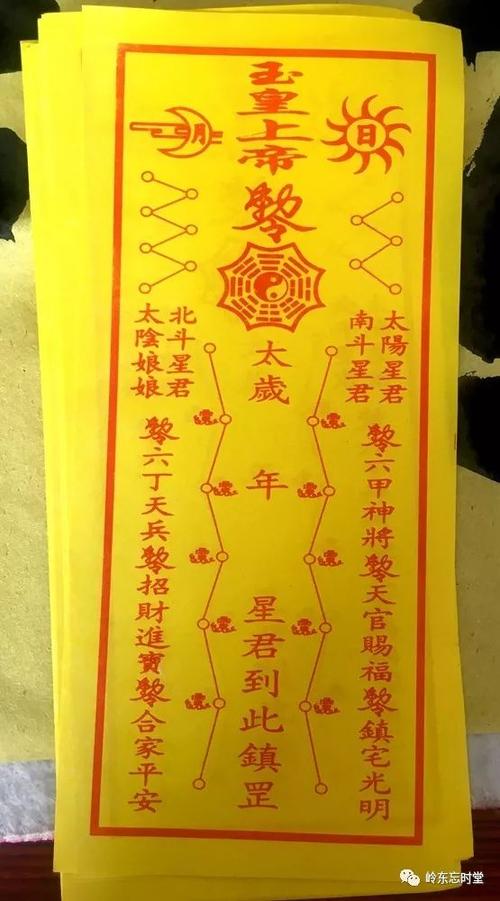 玉皇上帝
勅令
日
月
太陽星君
南斗星君
北斗星君
太陰娘娘
勅令六甲神將勅令天官賜福勅令鎮宅光明
太歲
年
星君到此鎮罡
勅令六丁天兵勅令招財進寶勅令合家平安
岭东忘时堂